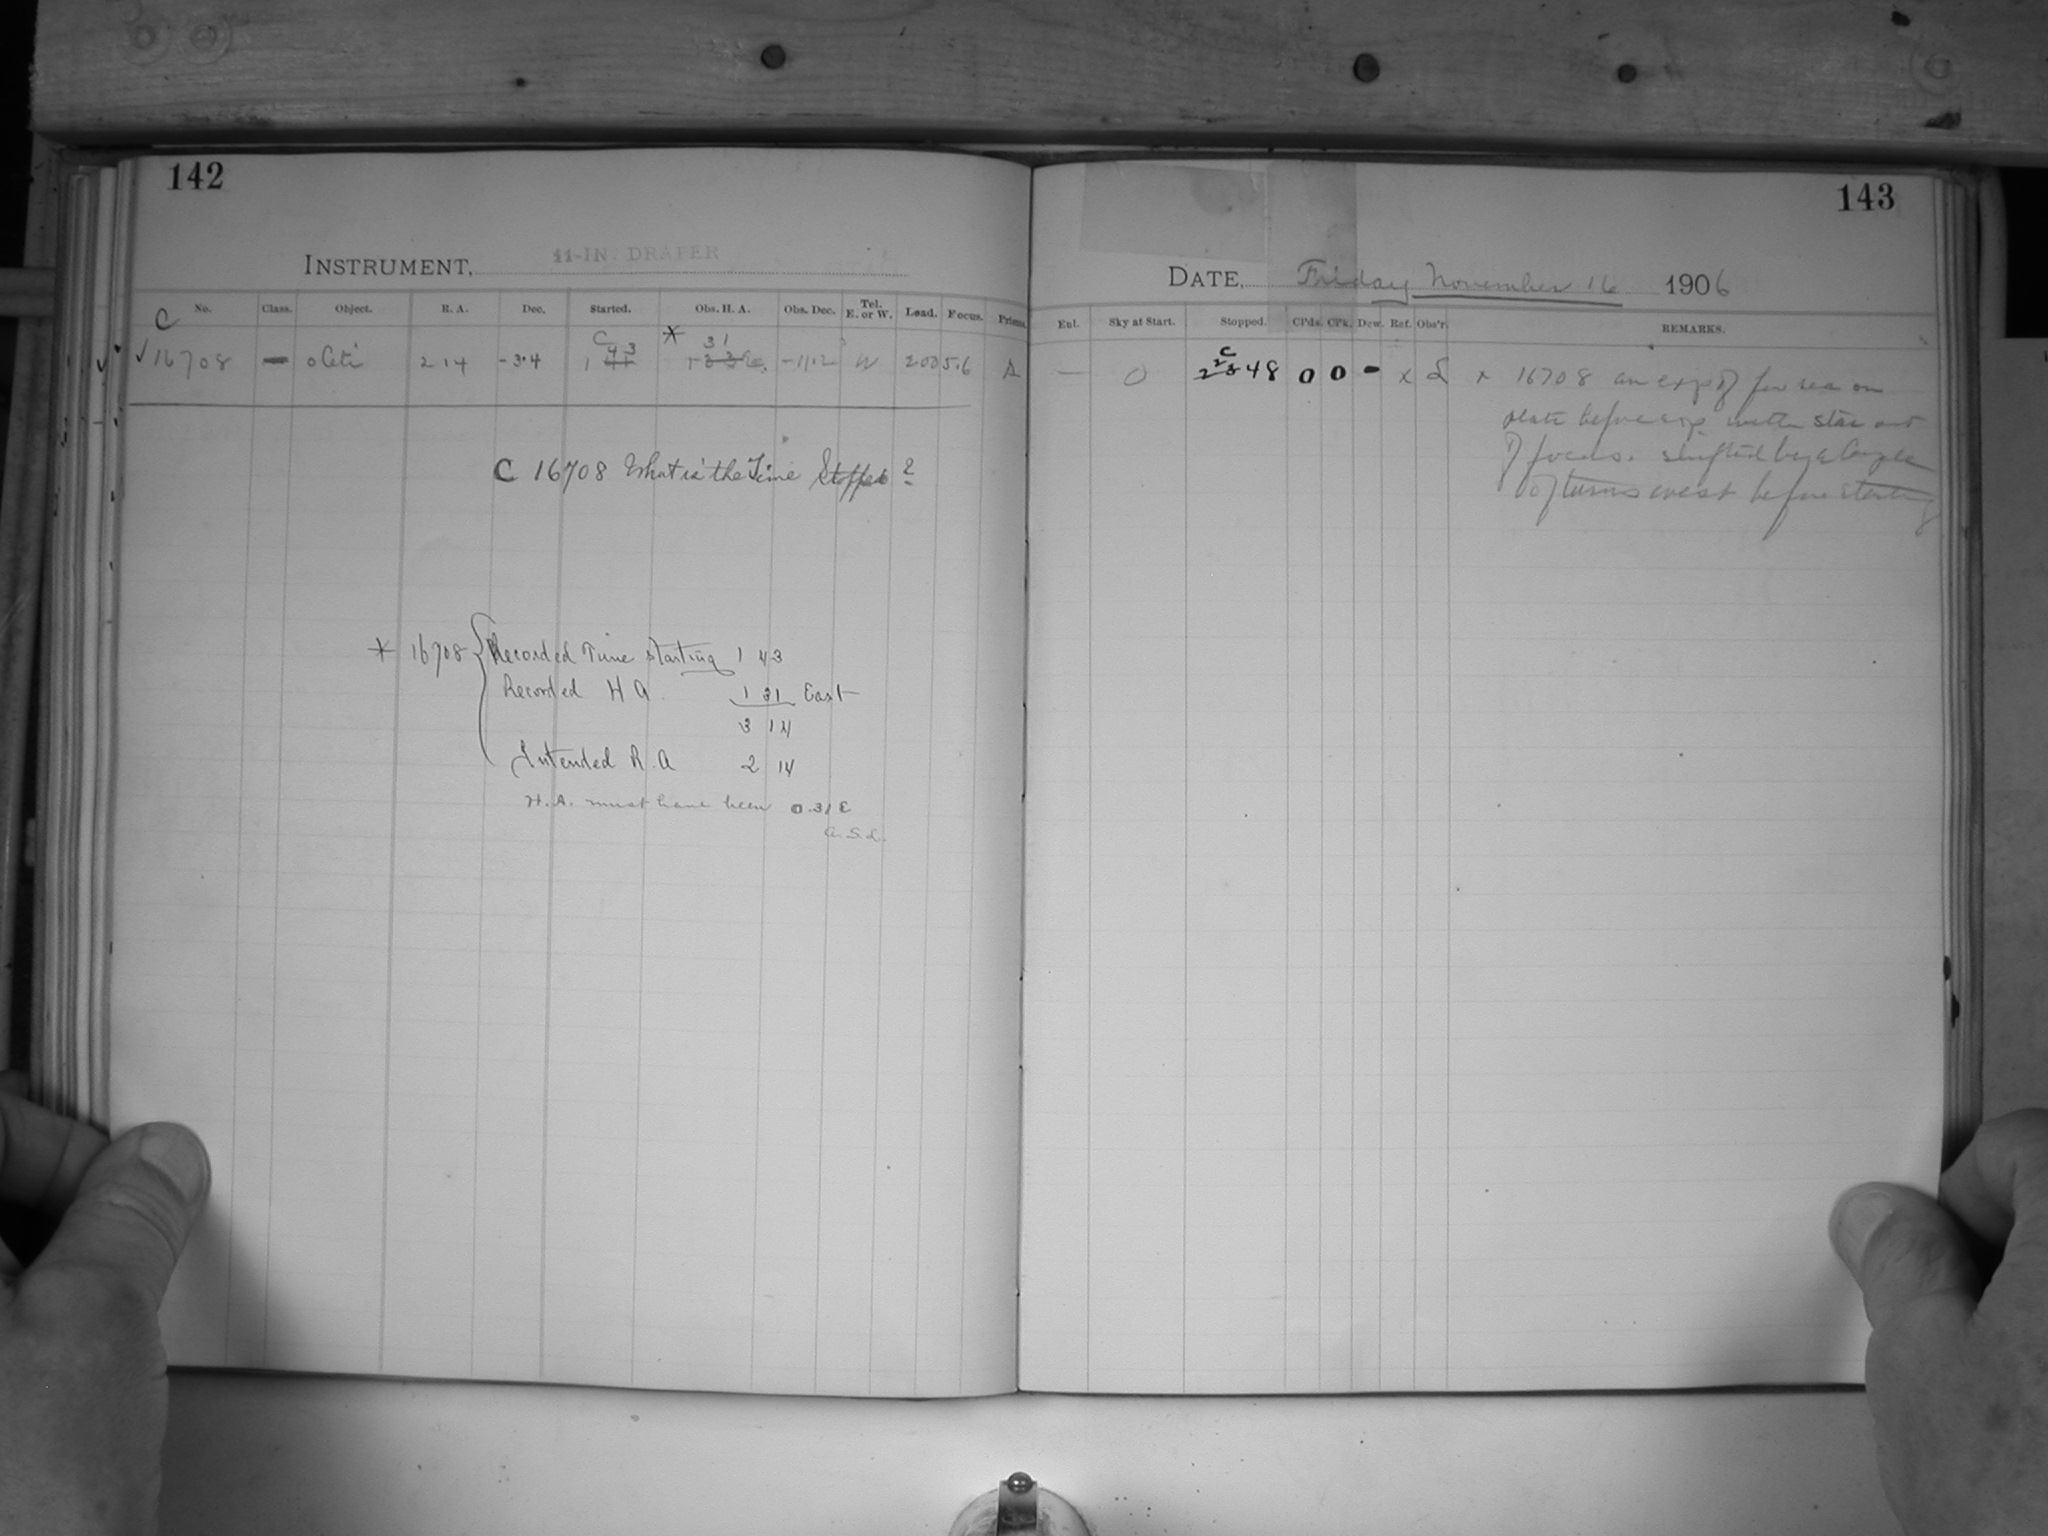 142
INSTRUMENT, 11-IN. DRAPER
No. Class. Object. R. A. Dec. Started. Obs. H. A. Obs. Dec. Tel. E. or W. Load. Focus. Prisms
C
C 43 * 31
✓ 16708 – o Ceti 2 14 -3.4 1 41 -11.2 W 200 5.6 A
C 16708 What is the Time Stopped ?
* 16708 { Recorded Time starting 1 43
Recorded H A. 1 31 East
3 14
Intended R. A 2 14
H. A. must have been 0.31 E
a. S. L.
143
DATE, Friday November 16 1906
Eul. Sky at Start. Stopped. CPds. CPk. Dew. Ref. Obs'r. REMARKS.
C
2
— 0 2 3 48 0 0 - x L x 16708 an exp of few sec on
plate before exp. with star out
of focus. shifted by
of turns west before starting